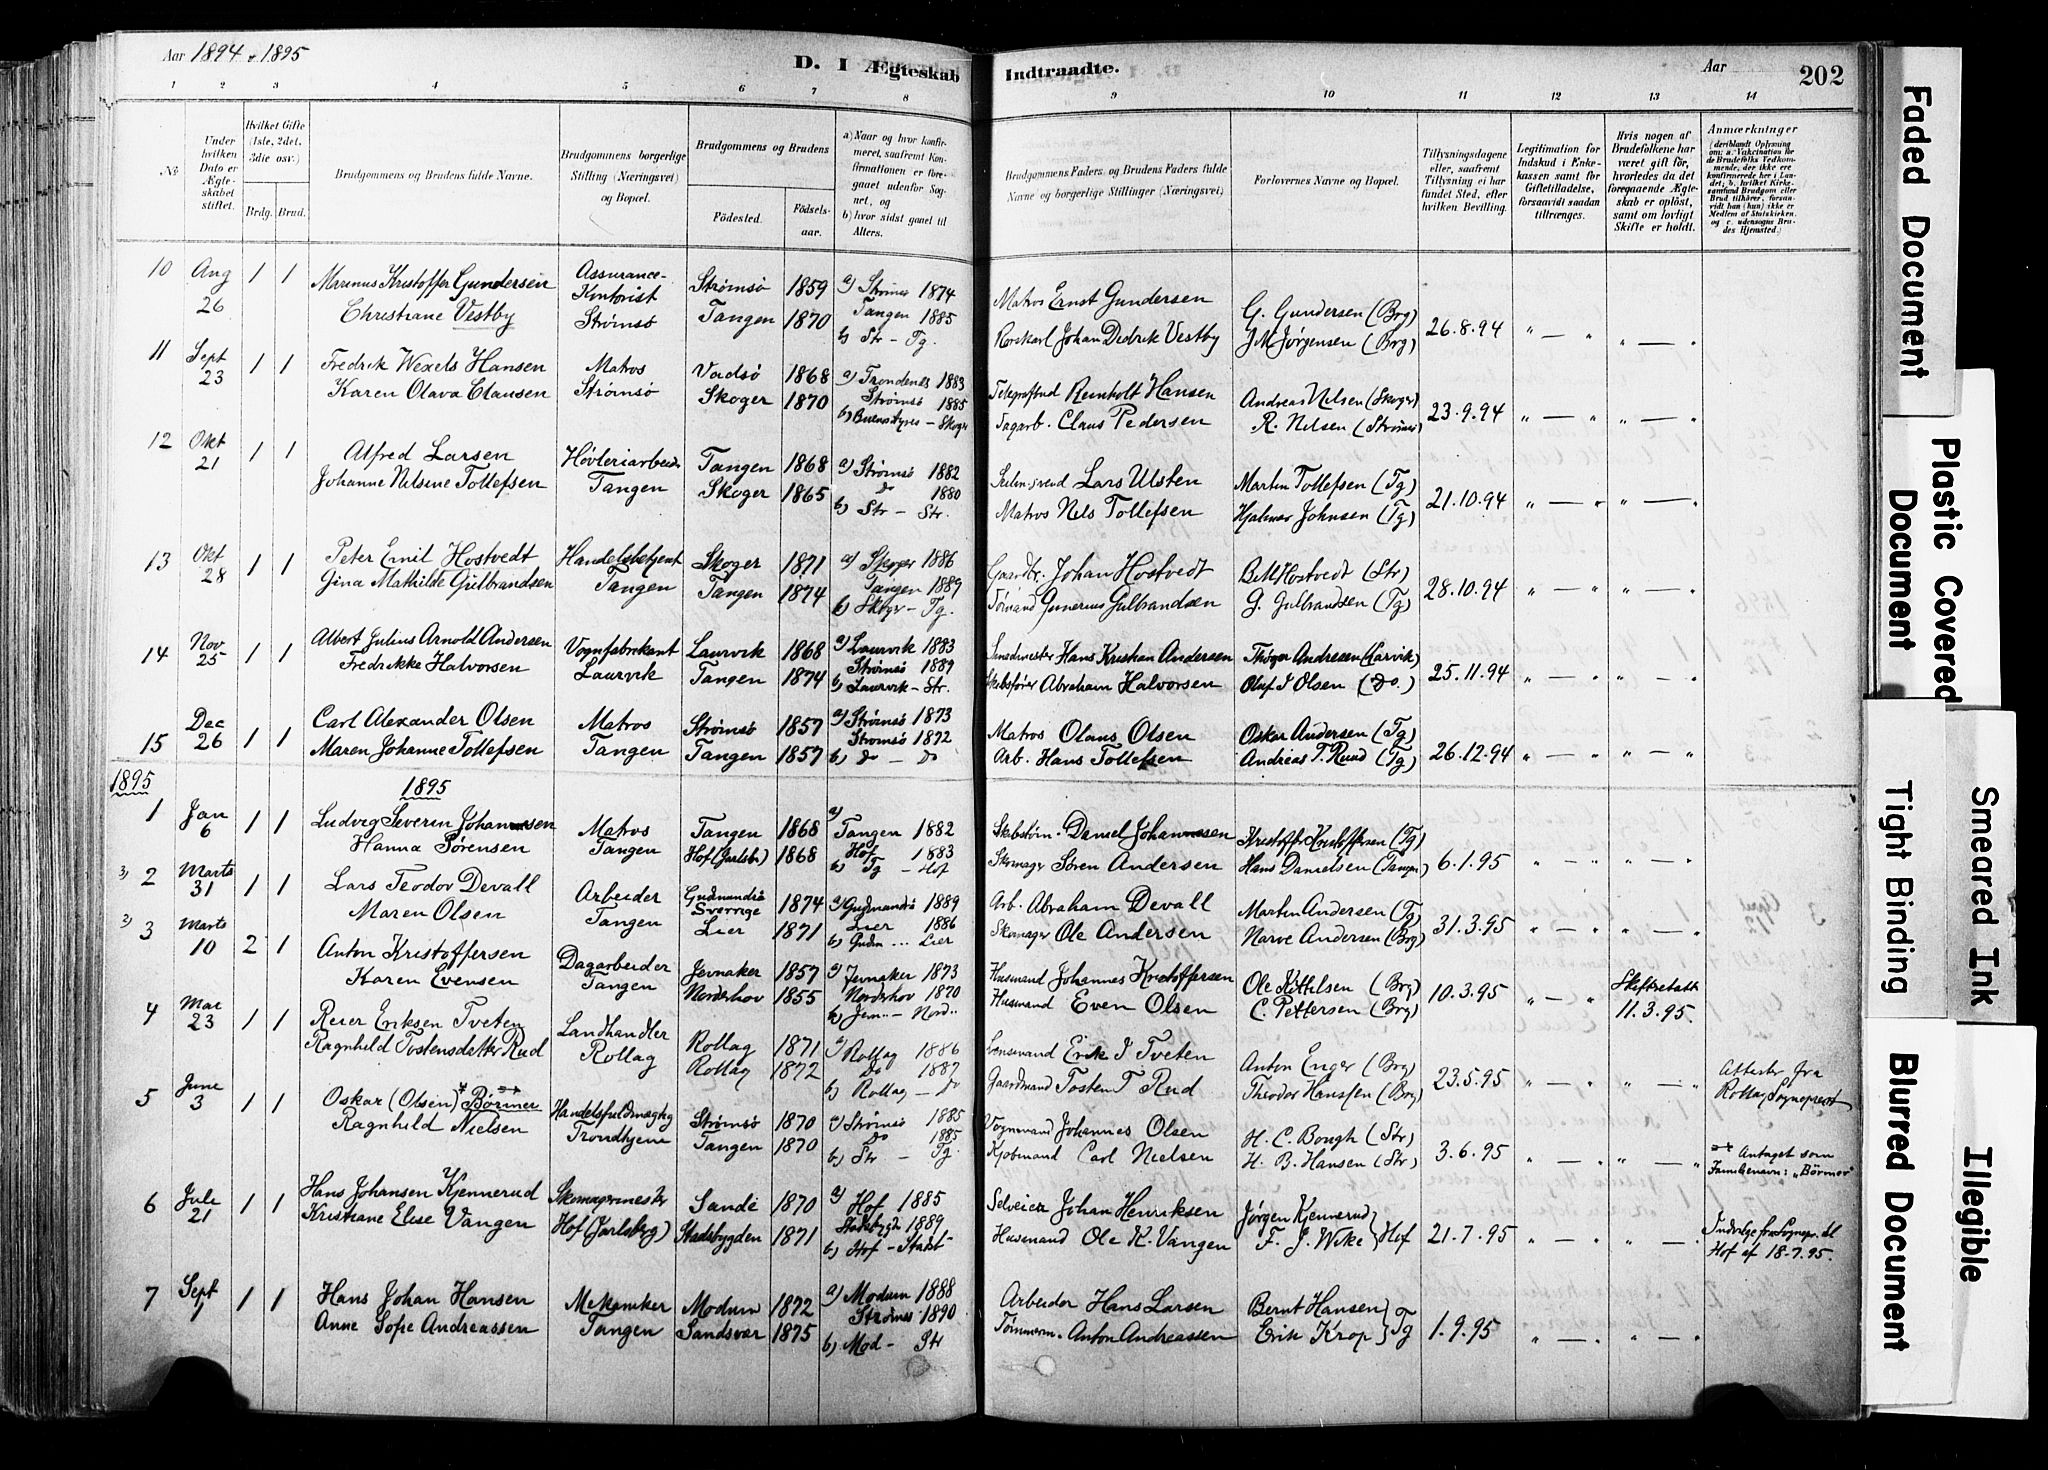 Aar 1894 & 1895
D. I Ægteskab
Indtraadte.
Aar
202
1 2 3 4 5 6 7 8 9 10 11 12 13 14
No
Under hvilken Dato er Ægteskabet stiftet.
Hvilket Gifte (1ste, 2det, 3die osv.)
Brdg. Brud.
Brudgommens og Brudens fulde Navne.
Brudgommens borgerlige Stilling (Næringsvei) og Bopæl.
Brudgommens og Brudens
Födested.
Födselsaar.
a) Naar og hvor konfirmeret, saafremt Konfirmationen er foregaaet udenfor Sognet, og
b) hvor sidst gaaet til Alters.
Brudgommens Faders og Brudens Faders fulde Navne og borgerlige Stillinger (Næringsvei)
Forlovernes Navne og Bopæl.
Tillysningsdagene eller, saafremt Tillysning ei har fundet Sted, efter hvilken Bevilling.
Legitimation for Indskud i Enkekassen samt for Giftetilladelse, forsaavidt saadan tiltrænges.
Hvis nogen af Brudefolkene har været gift før, hvorledes da det foregaaende Ægteskab er oplöst, samt om lovligt Skifte er holdt.
Anmærkninger
10 Aug 26 1 1 Marinus Kristoffer Gundersen Assurance-Kontorist Strømsö Strømsö 1859 a) Strømsø 1874 Matros Ernst Gundersen G. Gundersen (Brg) 26.8.94 " — " " — "
Christiane Vestby Tangen 1870 Tangen 1885 b) Str – Tg. Johan Dedrik Vestby J M Jørgensen (Brg)
11 Sept 23 1 1 Fredrik Wexels Hansen Matros Strømsö Vadsö 1868 a) Trondenes 1883 Reinholt Hansen Andreas Nelsen (Skoger) 23.9.94 " — " " — "
Karen Olava Clausen Skoger 1870 Strømsö 1885 – Skoger Dagarb. Claus Pedersen R. Nelsen (Strømsø)
12 Okt 21 1 1 Alfred Larsen Høvleriarbeider Tangen Tangen 1868 a) Strømsö 1882 Lars Ulsten Martin Tollefsen (Tg) 21.10.94 " — " " — "
Johanne Nelsine Tollefsen Skoger 1865 Do 1880 b) Str – Str. Matros Nels Tollefsen Hjalmar Johnsen (Tg)
13 Okt 28 1 1 Peter Emil Hostvedt Handelsbetjent Tangen Skoger 1871 a) Skoger 1886 Gaardbr. Johan Hostvedt B M Hostvedt (Str) 28.10.94 " — " " — "
Gina Mathilde Gulbrandsen Tangen 1874 Tangen 1889 b) Skoger – Tg. Gunerius Gulbrandsen G. Gulbrandsen (Tg)
14 Nov 25 1 1 Albert Julius Arnold Andersen Vognfabrikant Laurvik Laurvik 1868 a) Laurvik 1883 Smedmester Hans Kristian Andersen Thøger Andresen (Larvik) 25.11.94 " — " " — "
Fredrikke Halvorsen Tangen 1874 Strømsö 1889 b) Laurvik – Str. Skibsfører Abraham Halvorsen Oluf I Olsen (Do.)
15 Dec 26 1 1 Carl Alexander Olsen Matros Tangen Strømsö 1857 a) Strømsö 1873 Matros Olaus Olsen Oskar Andersen (Tg) 26.12.94 " — " " — "
Maren Johanne Tollefsen Tangen 1857 Strømsö 1872 b) Do – Do Arb. Hans Tollefsen Andreas T. Ruud (Tg)
1895 1895
1 Jan 6 1 1 Ludvig Severin Johannesen Matros Tangen Tangen 1868 a) Tangen 1882 Skibstøm. Daniel Johannesen Kristoffer Kristoffersen (Tg) 6.1.95 " — " " — "
Hanna Sörensen Hof (Jarlsbr) 1868 Hof 1883 b) Tg – Hof Skomager Sören Andersen Hans Danielsen (Tangen)
3) 2 Marts 31 1 1 Lars Teodor Devall Arbeider Tangen Gudmundrå Sverrige 1874 a) Gudmandrå 1889 Arb. Abraham Devall Martin Andersen (Tg) 31.3.95 " — " " — "
Maren Olsen Lier 1871 Lier 1886 b) Gudm ... Lier Skomager Ole Andersen Narve Andersen (Brg)
2) 3 Marts 10 2 1 Anton Kristoffersen Dagarbeider Tangen Jevnaker 1857 a) Jevnaker 1873 Husmand Johannes Kristoffersen Ole Kittelsen (Brg) 10.3.95 " — " Skifteretsatt 11.3.95.
Karen Evensen Norderhov 1855 Norderhov 1870 b) Jevn.. – Nord.. Husmand Even Olsen C. Pettersen (Brg)
4 Mai 23 1 1 Reier Eriksen Tveten Landhandler Rollag Rollag 1871 a) Rollag 1886 Lensmand Erik J Tveten Anton Enger (Brg) 23.5.95 " — " " — " Attester fra Rollag Sogneprest
Ragnhild Tostensdatter Rud Rollag 1872 Do 1887 b) Rollag – Do Gaardmand Tosten T Rud Theodor Hansen (Brg)
5 June 3 1 1 Oskar (Olsen) Börmer Handelsfuldmægtig Trondhjem Strømsö 1870 a) Strömsö 1885 Vognmand Johannes Olsen H. C. Bongh (Str) 3.6.95 " — " " — " Antaget som Familienavn: „Börmer"
Ragnhild Nielsen Tangen 1870 Do 1885 b) Str – Tg. Kjöbmand Carl Nielsen H. B. Hansen (Str)
6 Jule 21 1 1 Hans Johansen Kjennerud Skomagermester Hof (Jarlsberg) Sande 1870 a) Hof 1885 Selveier Johan Henriksen Jørgen Kjennerud 21.7.95 " — " " — " Indvilge fra Sognepr. til Hof af 18-7.95.
Kristiane Elise Vangen Stadsbygden 1871 Stadsbygd 1889 b) Hof – Stadsb- Husmand Ole K. Vangen F. J. Wike } Hof
7 Sept 1 1 1 Hans Johan Hansen Mekaniker Tangen Modum 1872 a) Modum 1888 Arbeider Hans Larsen Bernt Hansen 1.9.95 " — " " — "
Anne Sofie Andreassen Sandsvær 1875 Strømsö 1890 b) Mod – Str Tømmerm. Anton Andreassen Erik Krop } Tg
Faded Document
Plastic Covered Document
Tight Binding
Smeared Ink
Blurred Document
Illegible